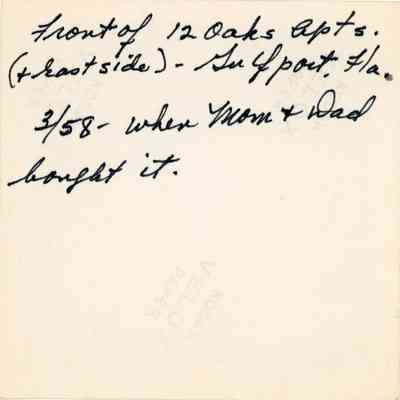 Front of 12 Oaks Apts.
(+ East side) - Gulfport, Fla.
3/58 - when Mom + Dad
bought it.
VELOX